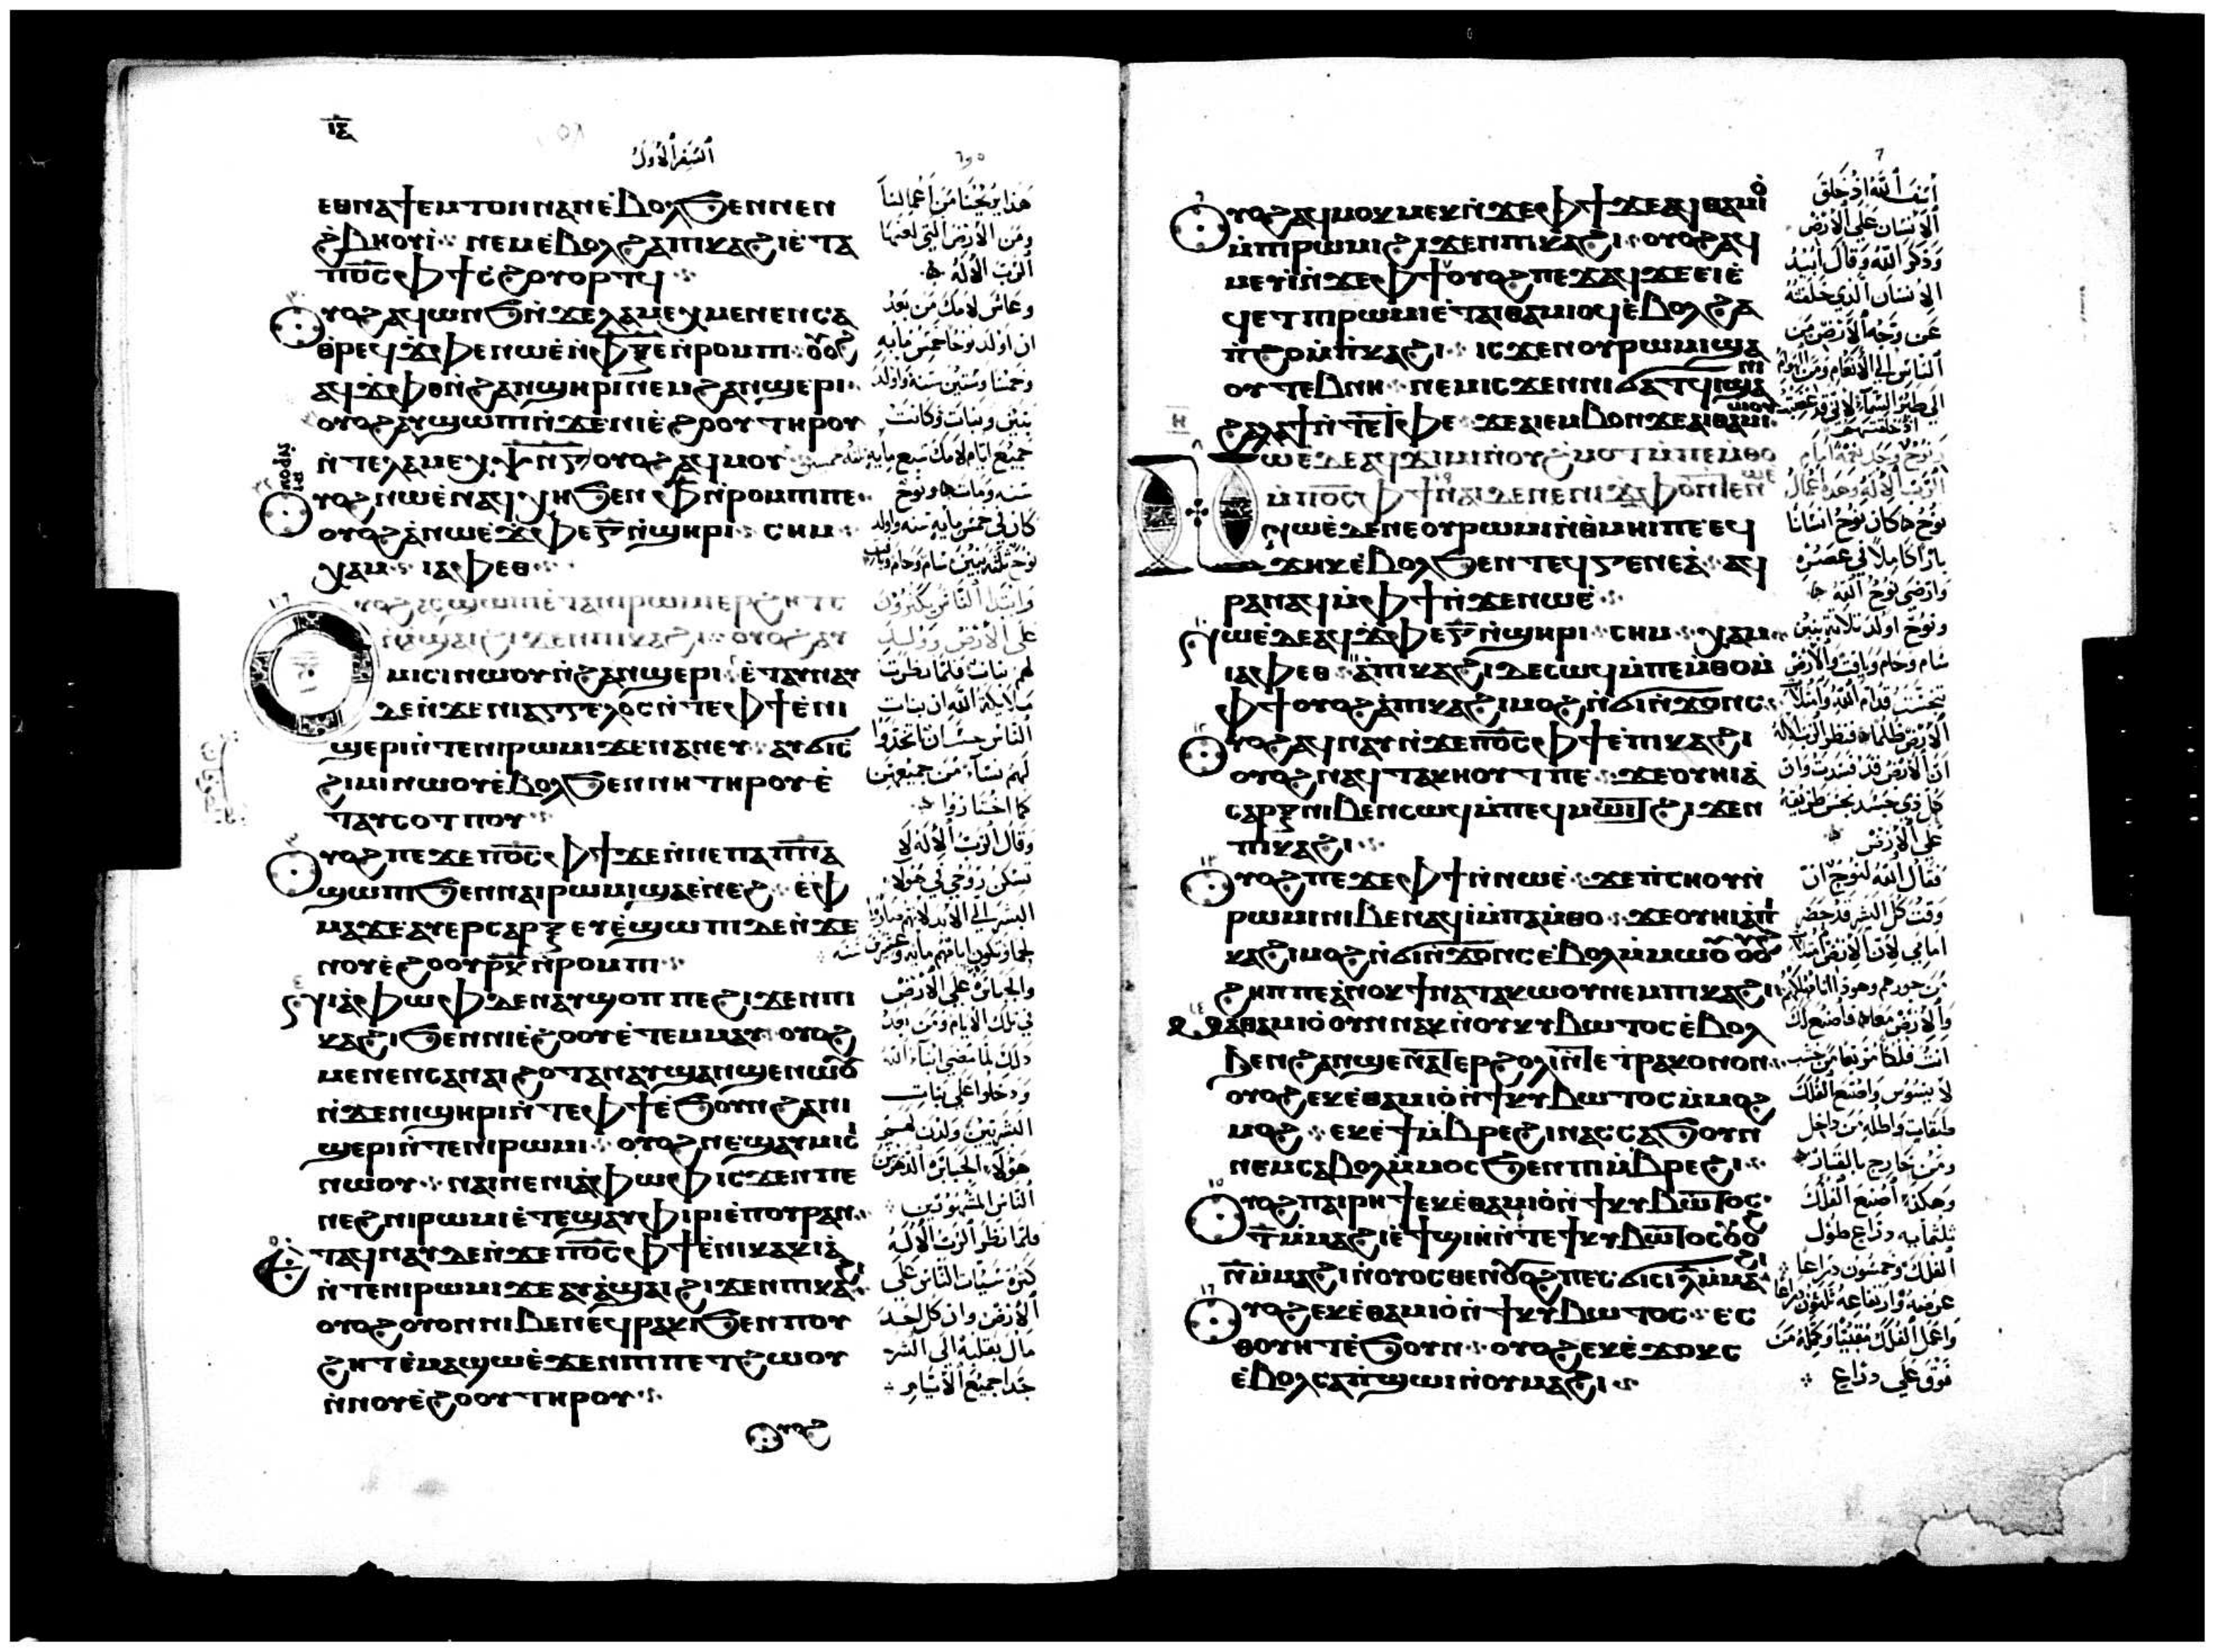 ⲓ̅ⲋ̅
السفر الاول
ⲉⲑⲛⲁϯⲉⲙⲧⲟⲛⲛⲁⲛⲉ̀ⲃⲟⲗϧⲉⲛⲛⲉⲛ
ϩ̀ⲃⲏⲟⲩⲓ̀ ⲛⲉⲙⲉ̀ⲃⲟⲗϩⲁⲡⲓⲕⲁϩⲓⲉ̀ⲧⲁ
ⲡⲟ̅ⲥ̅ⲫϯⲥ̀ϩⲟⲩⲟⲣⲧϥ
ⲟⲩⲟϩⲁϥⲱⲛϧⲛ̀ϫⲉⲗⲁⲙⲉⲭⲙⲉⲛⲉⲛⲥⲁ
ⲑ̀ⲣⲉϥϫ̀ⲫⲉⲛⲱⲉ̀ⲛ̀ⲫ̅ⲝ̅ⲉ̅ⲛ̀ⲣⲟⲙⲡⲓ ⲟⲩⲟϩ
ⲁϥϫ̀ⲫⲑⲛ̀ϩⲁⲛϣⲏⲣⲓⲛⲉⲙϩⲁⲛϣⲉⲣⲓ
ⲟⲩⲟϩⲁⲩϣⲱⲡⲓⲛ̀ϫⲉⲛⲓⲉ̀ϩⲟⲟⲩⲧⲏⲣⲟⲩ
ⲛ̀ⲧⲉⲗⲁⲙⲉⲭ ⲯ̅ⲛ̅ⲅ̅ ⲟⲩⲟϩⲁϥⲙⲟⲩ
ⲟⲩⲟϩⲛⲱⲉ̀ⲛⲁϥⲭⲏϧⲉⲛⲫ̅ⲛ̀ⲣⲟⲙⲡⲓⲡⲉ
ⲟⲩⲟϩⲁ̀ⲛⲱⲉ̀ϫ̀ⲫⲉⲅ̅ⲛ̀ϣⲏⲣⲓ ⲥⲏⲙ
ⲭⲁⲙ ⲓⲁⲫⲉⲑ
ⲟⲩⲟϩⲁⲥϣⲱⲡⲓⲉ̀ⲧⲁⲛⲓⲣⲱⲙⲓⲉⲣϩⲏⲧⲥ
ⲛ̀ⲁ̀ϣⲁⲓϩⲓϫⲉⲛⲡⲓⲕⲁϩⲓ ⲟⲩⲟϩⲁⲩ
ⲙⲓⲥⲓⲛⲱⲟⲩⲛ̀ϩⲁⲛϣⲉⲣⲓ ⲉ̀ⲧⲁⲩⲛⲁⲩ
ⲇⲉⲛ̀ϫⲉⲛⲓⲁⲅⲅⲉⲗⲟⲥⲛ̀ⲧⲉⲫϯⲉ̀ⲛⲓ
ϣⲉⲣⲓⲛ̀ⲧⲉⲛⲓⲣⲱⲙⲓϫⲉⲛⲁⲛⲉⲩ ⲁⲩϭⲓⲥ̀
ϩⲓⲙⲓⲛⲱⲟⲩⲉ̀ⲃⲟⲗϧⲉⲛⲛⲏⲧⲏⲣⲟⲩⲉ̀
ⲧⲁⲩⲥⲟⲧⲡⲟⲩ
ⲟⲩⲟϩⲡⲉϫⲉⲡⲟ̅ⲥ̅ⲫϯϫⲉⲛ̀ⲛⲉⲡⲁⲡ̅ⲛ̅ⲁ̅
ϣⲱⲡⲓϧⲉⲛⲛⲁⲓⲣⲱⲙⲓϣⲁⲉ̀ⲛⲉϩ ⲉ̀ⲫ
ⲙⲁϫⲉⲁⲩⲉⲣⲥⲁⲣⲝⲉⲩⲉ̀ϣⲱⲡⲓⲇⲉⲛ̀ϫⲉ
ⲛⲟⲩⲉ̀ϩⲟⲟⲩⲣ̅ⲕ̅ⲛ̀ⲣⲟⲙⲡⲓ
ⲛⲓⲁ̀ⲫⲱⲫⲇⲉⲛⲁⲩϣⲟⲡⲡⲉϩⲓϫⲉⲛⲡⲓ
ⲕⲁϩⲓϧⲉⲛⲛⲓⲉ̀ϩⲟⲟⲩⲉ̀ⲧⲉⲙⲙⲁⲩ ⲟⲩⲟϩ
ⲙⲉⲛⲉⲛⲥⲁⲛⲁⲓϩⲟⲧⲁⲛⲁⲩϣⲁⲛϣⲉⲛⲱⲟⲩ
ⲛ̀ϫⲉⲛⲓϣⲏⲣⲓⲛ̀ⲧⲉⲫϯⲉ̀ϧⲟⲩⲛϩⲁⲛⲓ
ϣⲉⲣⲓⲛ̀ⲧⲉⲛⲓⲣⲱⲙⲓ ⲟⲩⲟϩⲛⲉϣⲁⲩⲙⲓⲥⲓ
ⲛⲱⲟⲩ ⲛⲁⲓⲛⲉⲛⲓⲁ̀ⲫⲱⲫⲓⲥϫⲉⲛⲡⲉ
ⲛⲉϩⲛⲓⲣⲱⲙⲓⲉ̀ⲧⲉϣⲁⲩⲫⲓⲣⲓⲉ̀ⲡⲟⲩⲣⲁⲛ
ⲉⲧⲁϥⲛⲁⲩⲇⲉⲛ̀ϫⲉⲡⲟ̅ⲥ̅ⲫϯⲉ̀ⲛⲓⲕⲁⲕⲓⲁ̀
ⲛ̀ⲧⲉⲛⲓⲣⲱⲙⲓϫⲉⲁⲩⲁ̀ϣⲁⲓϩⲓϫⲉⲛⲡⲓⲕⲁϩⲓ
ⲟⲩⲟϩⲟⲩⲟⲛⲛⲓⲃⲉⲛⲉϥⲣⲁⲕⲓϧⲉⲛⲡⲟⲩ
ϩⲏⲧⲉ̀ⲙⲁϣⲱⲉ̀ϫⲉⲛⲡⲓⲡⲉⲧϩⲱⲟⲩ
ⲛ̀ⲛⲟⲩⲉ̀ϩⲟⲟⲩⲧⲏⲣⲟⲩ
ⲟⲩⲟϩ
هذا يريحنا من اعمالنا
ومن الارض التي لعنها
الرب الاله
وعاش لامك من بعد
ان اولد نوحا خمس مايه
وخمسا وستين سنه واولد
بنين وبنات وكانت
جميع ايام لامك سبع مايه
سنه ومات ونوح
كان في خمس مايه سنه واولد
نوح ثلثه بنين سام وحام ويافت
وابتدا الناس يكثرون
على الارض وولد
لهم بنات فلما نظرت
ملايكة الله ان بنات
الناس حسان اتخذوا
لهم نسآء من جميعهن
كما اختاروا
وقال الرب الاله لا
تسكن روحي في هولاء
البشر الى الابد لانهم صاروا
لحما وتكون ايامهم مايه وعشرين سنه
والجبابره على الارض
في تلك الايام ومن بعد
ذلك لما مضى ابنآء الله
ودخلوا على بنات
البشريين ولدن لهم
هولاء الجبابره الذهرين
الناس المشهورين
فلما نظر الرب الاله
كثره سيات الناس على
الارض وان كل احد
مال بقلبه الى الشر
جدا جميع الايام
ⲟⲩⲟϩⲁϥⲙⲟⲕⲙⲉⲕⲛ̀ϫⲉⲫϯϫⲉⲁϥⲑⲁⲙⲓⲟ̀
ⲙ̀ⲡⲓⲣⲱⲙⲓϩⲓϫⲉⲛⲡⲓⲕⲁϩⲓ ⲟⲩⲟϩⲁϥ
ⲙⲉⲩⲓ̀ⲛ̀ϫⲉⲫϯ ⲟⲩⲟϩⲡⲉϫⲁϥϫⲉⲉⲓⲉ̀
ϥⲉⲧⲡⲓⲣⲱⲙⲓⲉ̀ⲧⲁⲓⲑⲁⲙⲓⲟϥⲉ̀ⲃⲟⲗϩⲁ
ⲡ̀ϩⲟⲙ̀ⲡ̀ⲕⲁϩⲓ ⲓⲥϫⲉⲛⲟⲩⲣⲱⲙⲓϣⲁ
ⲟⲩⲧⲉⲃⲛⲏ ⲛⲉⲙⲓⲥϫⲉⲛⲛⲓϭⲁⲧϥⲓϣⲁⲛⲓ
ϩⲁⲗⲁϯⲛ̀ⲧⲉⲧⲫⲉ ϫⲉⲁⲓⲉⲙⲃⲟⲛϫⲉⲁⲓⲑⲁⲙⲓⲱⲟⲩ
ⲛⲱⲉⲇⲉⲁϥϫⲓⲙⲓⲛ̀ⲟⲩϩ̀ⲙⲟⲧⲙ̀ⲡⲉⲙ̀ⲑⲟ
ⲙ̀ⲡⲟ̅ⲥ̅ⲫϯ ⲛⲁⲓⲇⲉⲛⲉⲛⲓϫ̀ⲫⲟⲛ̀ⲧⲉⲛⲱⲉ̀
ⲛⲱⲉ̀ⲇⲉⲛⲉⲟⲩⲣⲱⲙⲓⲛ̀ⲑ̀ⲙⲏⲓⲡⲉⲉϥ
ϫⲏⲕⲉ̀ⲃⲟⲗϧⲉⲛⲧⲉϥⲅⲉⲛⲉⲁ̀ ⲁϥ
ⲣⲁⲛⲁϥⲙ̀ⲫϯⲛ̀ϫⲉⲛⲱⲉ̀
ⲛⲱⲉ̀ⲇⲉⲁϥϫ̀ⲫⲉⲅ̅ⲛ̀ϣⲏⲣⲓ ⲥⲏⲙ ⲭⲁⲙ
ⲓⲁⲫⲉⲑ ⲁ̀ⲡⲓⲕⲁϩⲓⲇⲉⲥⲱϥⲙ̀ⲡⲉⲙ̀ⲑⲟⲙ̀
ⲫϯⲟⲩⲟϩⲁ̀ⲡⲓⲕⲁϩⲓⲙⲟϩⲛ̀ϭⲓⲛ̀ϫⲟⲛⲥ
ⲟⲩⲟϩⲁϥⲛⲁⲩⲛ̀ϫⲉⲡⲟ̅ⲥ̅ⲫϯⲉ̀ⲡⲓⲕⲁϩⲓ
ⲟⲩⲟϩⲛⲁϥⲧⲁⲕⲏⲟⲩⲧⲡⲉ ϫⲉⲟⲩⲏⲓⲁ̀
ⲥⲁⲣⲝⲛⲓⲃⲉⲛⲥⲱϥⲙ̀ⲡⲉϥⲙⲱⲓⲧϩⲓϫⲉⲛ
ⲡⲓⲕⲁϩⲓ
ⲟⲩⲟϩⲡⲉϫⲉⲫϯⲛ̀ⲛⲱⲉ̀ ϫⲉⲡ̀ⲥⲏⲟⲩⲛ̀
ⲣⲱⲙⲓⲛⲓⲃⲉⲛⲁϥⲓ̀ⲙ̀ⲡⲁⲙ̀ⲑⲟ ϫⲉⲟⲩⲏⲓⲁ̀ⲡⲓ
ⲕⲁϩⲓⲙⲟϩⲛ̀ϭⲓⲛ̀ϫⲟⲛⲥⲉ̀ⲃⲟⲗⲙ̀ⲙⲱⲟⲩ ⲟⲩⲟϩ
ϩⲏⲡⲡⲉⲁ̀ⲛⲟⲕϯⲛⲁⲧⲁⲕⲱⲟⲩⲛⲉⲙⲡⲓⲕⲁϩⲓ
ⲙⲁⲑⲁⲙⲓⲟ̀ⲟⲩⲛⲛⲁⲕⲛ̀ⲟⲩⲕⲩⲃⲱⲧⲟⲥⲉ̀ⲃⲟⲗ
ϧⲉⲛϩⲁⲛϣⲉⲛ̀ⲁⲧⲉⲣϩⲟⲗⲓⲛ̀ⲧⲉⲧⲣⲁⲕⲟⲛⲟⲛ
ⲟⲩⲟϩⲉⲕⲉ̀ⲑⲁⲙⲓⲟ̀ⲛ̀ϯⲕⲩⲃⲱⲧⲟⲥⲙ̀ⲙⲟϩ
ⲙⲟϩ ⲉⲕⲉ̀ϯⲙ̀ⲃⲣⲉϩⲓⲛⲁⲥⲥⲁϧⲟⲩⲛ
ⲛⲉⲙⲥⲁⲃⲟⲗⲙ̀ⲙⲟⲥϧⲉⲛⲡⲓⲙ̀ⲃⲣⲉϩⲓ
ⲟⲩⲟϩⲡⲁⲓⲣⲏϯⲉⲕⲉ̀ⲑⲁⲙⲓⲟ̀ⲛ̀ϯⲕⲩⲃⲱⲧⲟⲥ
ⲧ̅ⲙ̀ⲙⲁϩⲓⲉ̀ⲧϣⲓⲏⲛ̀ⲧⲉϯⲕⲩⲃⲱⲧⲟⲥ ⲟⲩⲟϩ
ⲛ̅ⲙ̀ⲙⲁϩⲓⲛ̀ⲟⲩⲟⲥⲑⲉⲛ ⲟⲩⲟϩⲡⲉⲥϭⲓⲥⲓⲗ̅ⲙ̀ⲙⲁϩⲓ
ⲟⲩⲟϩⲉⲕⲉ̀ⲑⲁⲙⲓⲟ̀ⲛ̀ϯⲕⲩⲃⲱⲧⲟⲥ ⲉⲥ
ⲑⲟⲩⲏⲧⲉ̀ϧⲟⲩⲛ ⲟⲩⲟϩⲉⲕⲉ̀ϫⲟⲕⲥ
ⲉ̀ⲃⲟⲗⲥⲁⲡ̀ϣⲱⲓⲛ̀ⲟⲩⲙⲁϩⲓ
اسف الله اذ خلق
الانسان على الارض
وذكر الله وقال ابيد
الانسان الذي خلقته
عن وجه الارض من
الناس الى الانعام ومن الهوام
الى طير السمآء لاني قد غضبت
اذ خلقتهم
الرب الاله وهذه اعمال
نوح كان نوح انسانا
بارا كاملا في عصره
وارضى نوح الله
ونوح اولد ثلاثة بنين
سام وحام ويافت والارض
تنجست قدام الله وامتلات
الارض ظلما فنظر الرب الاله
ان الارض قد فسدت وان
كل ذي جسد نجس طريقه
على الارض
فقال الله لنوح ان
وقت كل البشر قد حضر
امامي لان الارض امتلات
من جورهم وهوذا انا مهلكهم
والارض معا فاصنع لك
انت فلكا مربعا من خشب
لا يسوس واصنع الفلك
طبقات واطله من داخل
ومن خارج بالقار
وهكذا اصنع الفلك
ثلثمايه دراع طول
الفلك وخمسون دراعا
عرضه وارتفاعه ثلثون دراعا
واعمل الفلك مقبيا وكمله من
فوق على دراع